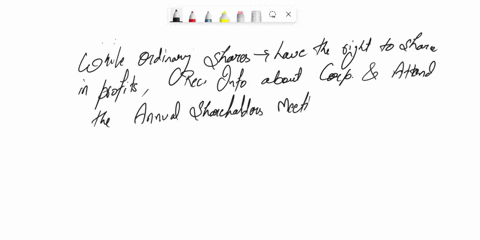 While Ordinary Shares → have the right to share
in profits, Rec. Info about Corp. & Attend
the Annual Shareholders Meeti